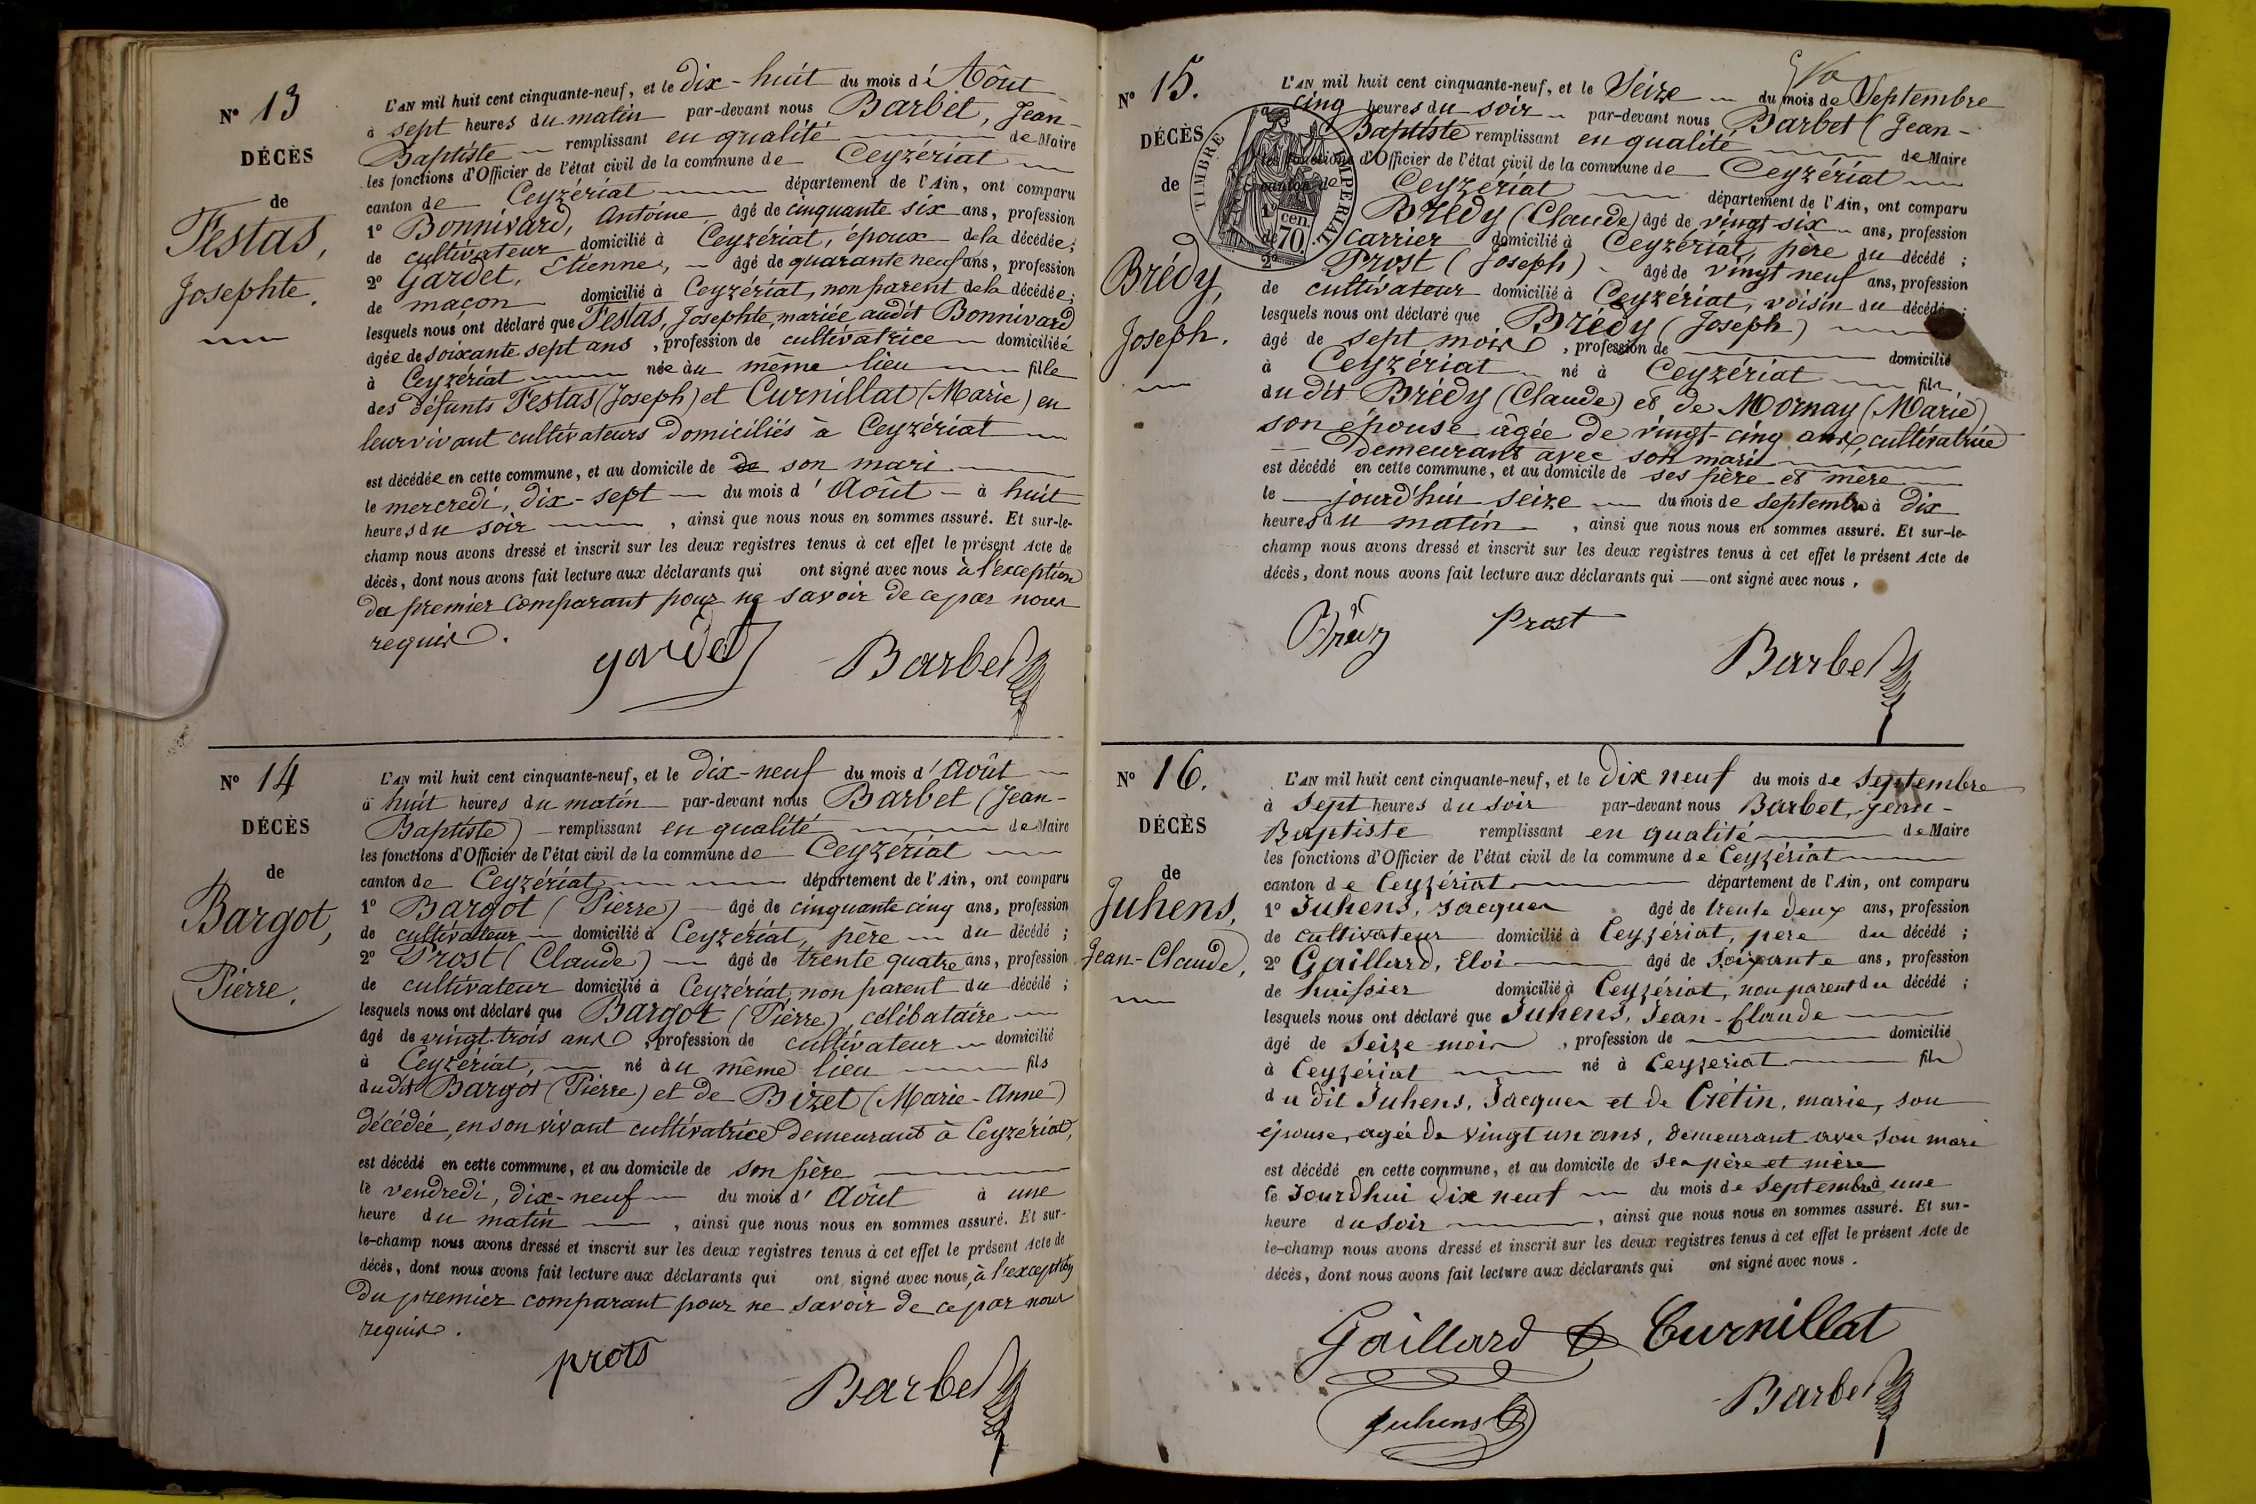 N° 13
DÉCÈS
de
Festas,
Josephte.
L'AN mil huit cent cinquante-neuf, et le dix-huit du mois d'Aôut
à sept heures du matin par-devant nous Barbet, Jean-
Baptiste remplissant en qualité de Maire
les fonctions d'Officier de l'état civil de la commune de Ceyzériat
canton de Ceyzériat département de l'Ain, ont comparu
1° Bonnivard, Antoine, âgé de cinquante six ans, profession
de cultivateur domicilié à Ceyzériat, époux de la décédée;
2° Gardet, Etienne, âgé de quarante neuf ans, profession
de maçon domicilié à Ceyzériat, non parent de la décédée;
lesquels nous ont déclaré que Festas, Josephte, mariée audit Bonnivard
âgée de soixante sept ans, profession de cultivatrice domiciliée
à Ceyzériat née au même lieu fille
des défunts Festas (Joseph) et Curnillat (Marie) en
leur vivant cultivateurs domiciliés à Ceyzériat
est décédée en cette commune, et au domicile de de son mari
le mercredi, dix-sept du mois d'Août à huit
heures du soir, ainsi que nous nous en sommes assuré. Et sur-le-
champ nous avons dressé et inscrit sur les deux registres tenus à cet effet le présent Acte de
décès, dont nous avons fait lecture aux déclarants qui ont signé avec nous à l'exception
du premier comparant pour ne savoir de ce par nous
requis.
gardet Barbet
N° 14
DÉCÈS
de
Bargot,
Pierre.
L'AN mil huit cent cinquante-neuf, et le dix-neuf du mois d'Août
à huit heures du matin par-devant nous Barbet (Jean-
Baptiste) remplissant en qualité de Maire
les fonctions d'Officier de l'état civil de la commune de Ceyzériat
canton de Ceyzériat département de l'Ain, ont comparu
1° Bargot (Pierre) âgé de cinquante cinq ans, profession
de cultivateur domicilié à Ceyzeriat, père du décédé;
2° Prost (Claude) âgé de trente quatre ans, profession
de cultivateur domicilié à Ceyzériat, non parent du décédé;
lesquels nous ont déclaré que Bargot (Pierre) célibataire
âgé de vingt-trois ans, profession de cultivateur domicilié
à Ceyzériat, né au même lieu fils
dudit Bargot (Pierre) et de Bizet (Marie-Anne)
décédée, en son vivant cultivatrice demeurant à Ceyzériat,
est décédé en cette commune, et au domicile de son père
le vendredi, dix-neuf du mois d'Août à une
heure du matin, ainsi que nous nous en sommes assuré. Et sur-
le-champ nous avons dressé et inscrit sur les deux registres tenus à cet effet le présent Acte de
décès, dont nous avons fait lecture aux déclarants qui ont signé avec nous, à l'exception
du premier comparant pour ne savoir de ce par nous
requis.
prots Barbet
N° 15.
DÉCÈS
de
Brédy,
Joseph.
TIMBRE IMPERIAL
1 cen
de 70
L'AN mil huit cent cinquante-neuf, et le Seize du mois de Septembre
cinq heures du soir par-devant nous Barbet (Jean-
Baptiste remplissant en qualité de Maire
les fonctions d'Officier de l'état civil de la commune de Ceyzériat
canton de Ceyzériat département de l'Ain, ont comparu
Brédy (Claude) âgé de vingt-six ans, profession
carrier domicilié à Ceyzériat, père du décédé;
2° Prost (Joseph) âgé de vingt neuf ans, profession
de cultivateur domicilié à Ceyzériat, voisin du décédé;
lesquels nous ont déclaré que Brédy (Joseph)
âgé de sept mois, profession de domicilié
à Ceyzériat né à Ceyzériat fils
du dit Brédy (Claude) et de Mornay (Marie)
son épouse âgée de vingt-cinq ans, cultivatrice
demeurant avec son mari
est décédé en cette commune, et au domicile de ses père et mère
le jourd'hui seize du mois de septembre à dix
heures du matin, ainsi que nous nous en sommes assuré. Et sur-le-
champ nous avons dressé et inscrit sur les deux registres tenus à cet effet le présent Acte de
décès, dont nous avons fait lecture aux déclarants qui ont signé avec nous.
Prost
Barbet
N° 16.
DÉCÈS
de
Juhens,
Jean-Claude,
L'AN mil huit cent cinquante-neuf, et le dix neuf du mois de Septembre
à Sept heures du soir par-devant nous Barbet, Jean-
Baptiste remplissant en qualité de Maire
les fonctions d'Officier de l'état civil de la commune de Ceyzériat
canton de Ceyzériat département de l'Ain, ont comparu
1° Juhens, Jacques âgé de trente deux ans, profession
de cultivateur domicilié à Ceyzériat, pere du décédé;
2° Gaillard, Eloi âgé de soixante ans, profession
de huissier domicilié à Ceyzériat, non parent du décédé;
lesquels nous ont déclaré que Juhens, Jean-Claude
âgé de Seize mois, profession de domicilié
à Ceyzériat né à Ceyzeriat fils
du dit Juhens, Jacques et de Crétin, marie, son
épouse, agée de vingt un ans, demeurant avec son mari
est décédé en cette commune, et au domicile de ses père et mère
le Jourdhui dix neuf du mois de Septembre à une
heure du soir, ainsi que nous nous en sommes assuré. Et sur-
le-champ nous avons dressé et inscrit sur les deux registres tenus à cet effet le présent Acte de
décès, dont nous avons fait lecture aux déclarants qui ont signé avec nous.
Gaillard Curnillat
Barbet
Juhens